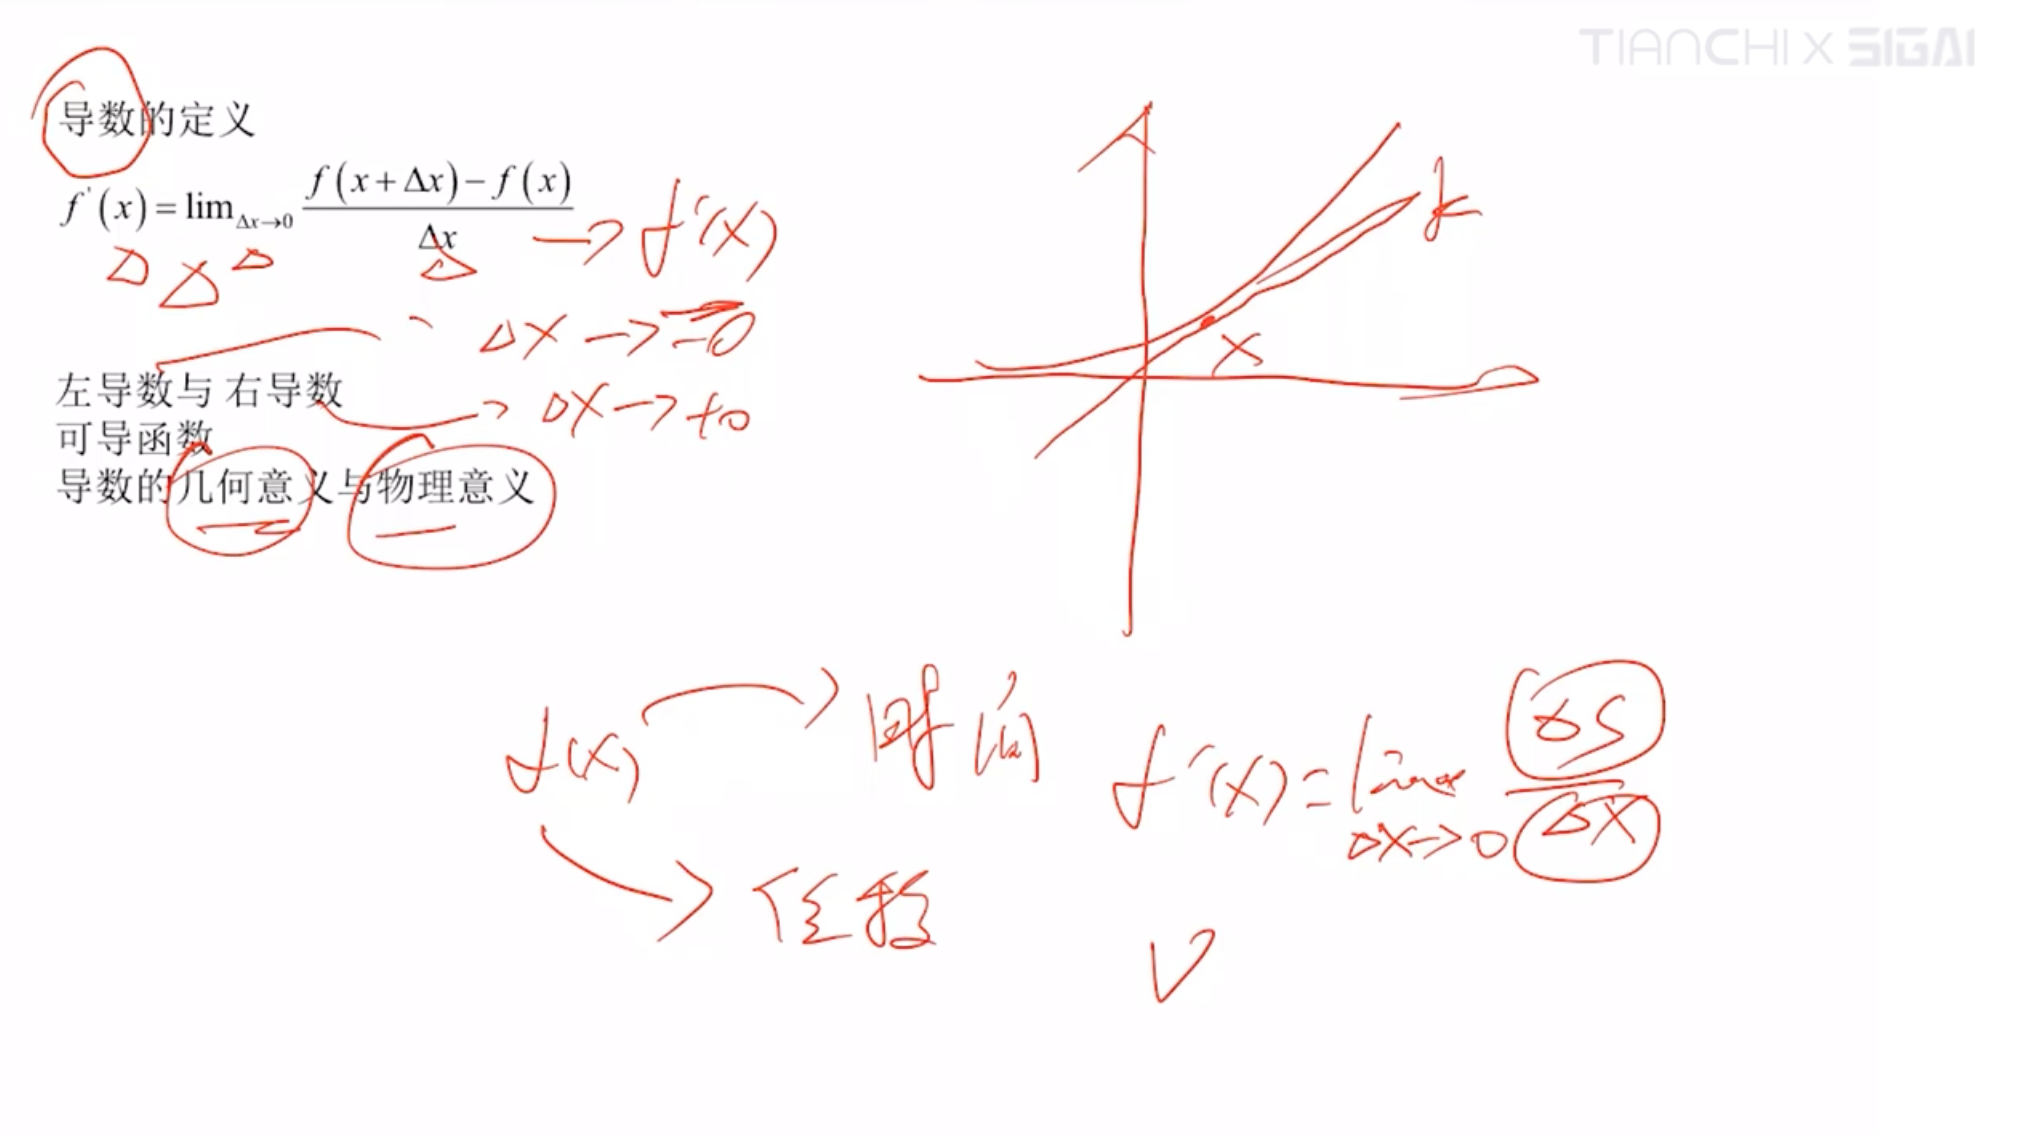 TIANCHI X SIGAI
导数的定义
f'(x) = lim Δx→0 f(x+Δx) − f(x) / Δx
→ f'(x)
Δ Δ Δ Δ
Δx → −0
左导数与 右导数
Δx → +0
可导函数
导数的几何意义与物理意义
k
x
f(x)
时间
f'(x) = lim Δx→0 ΔS / ΔX
位移
V